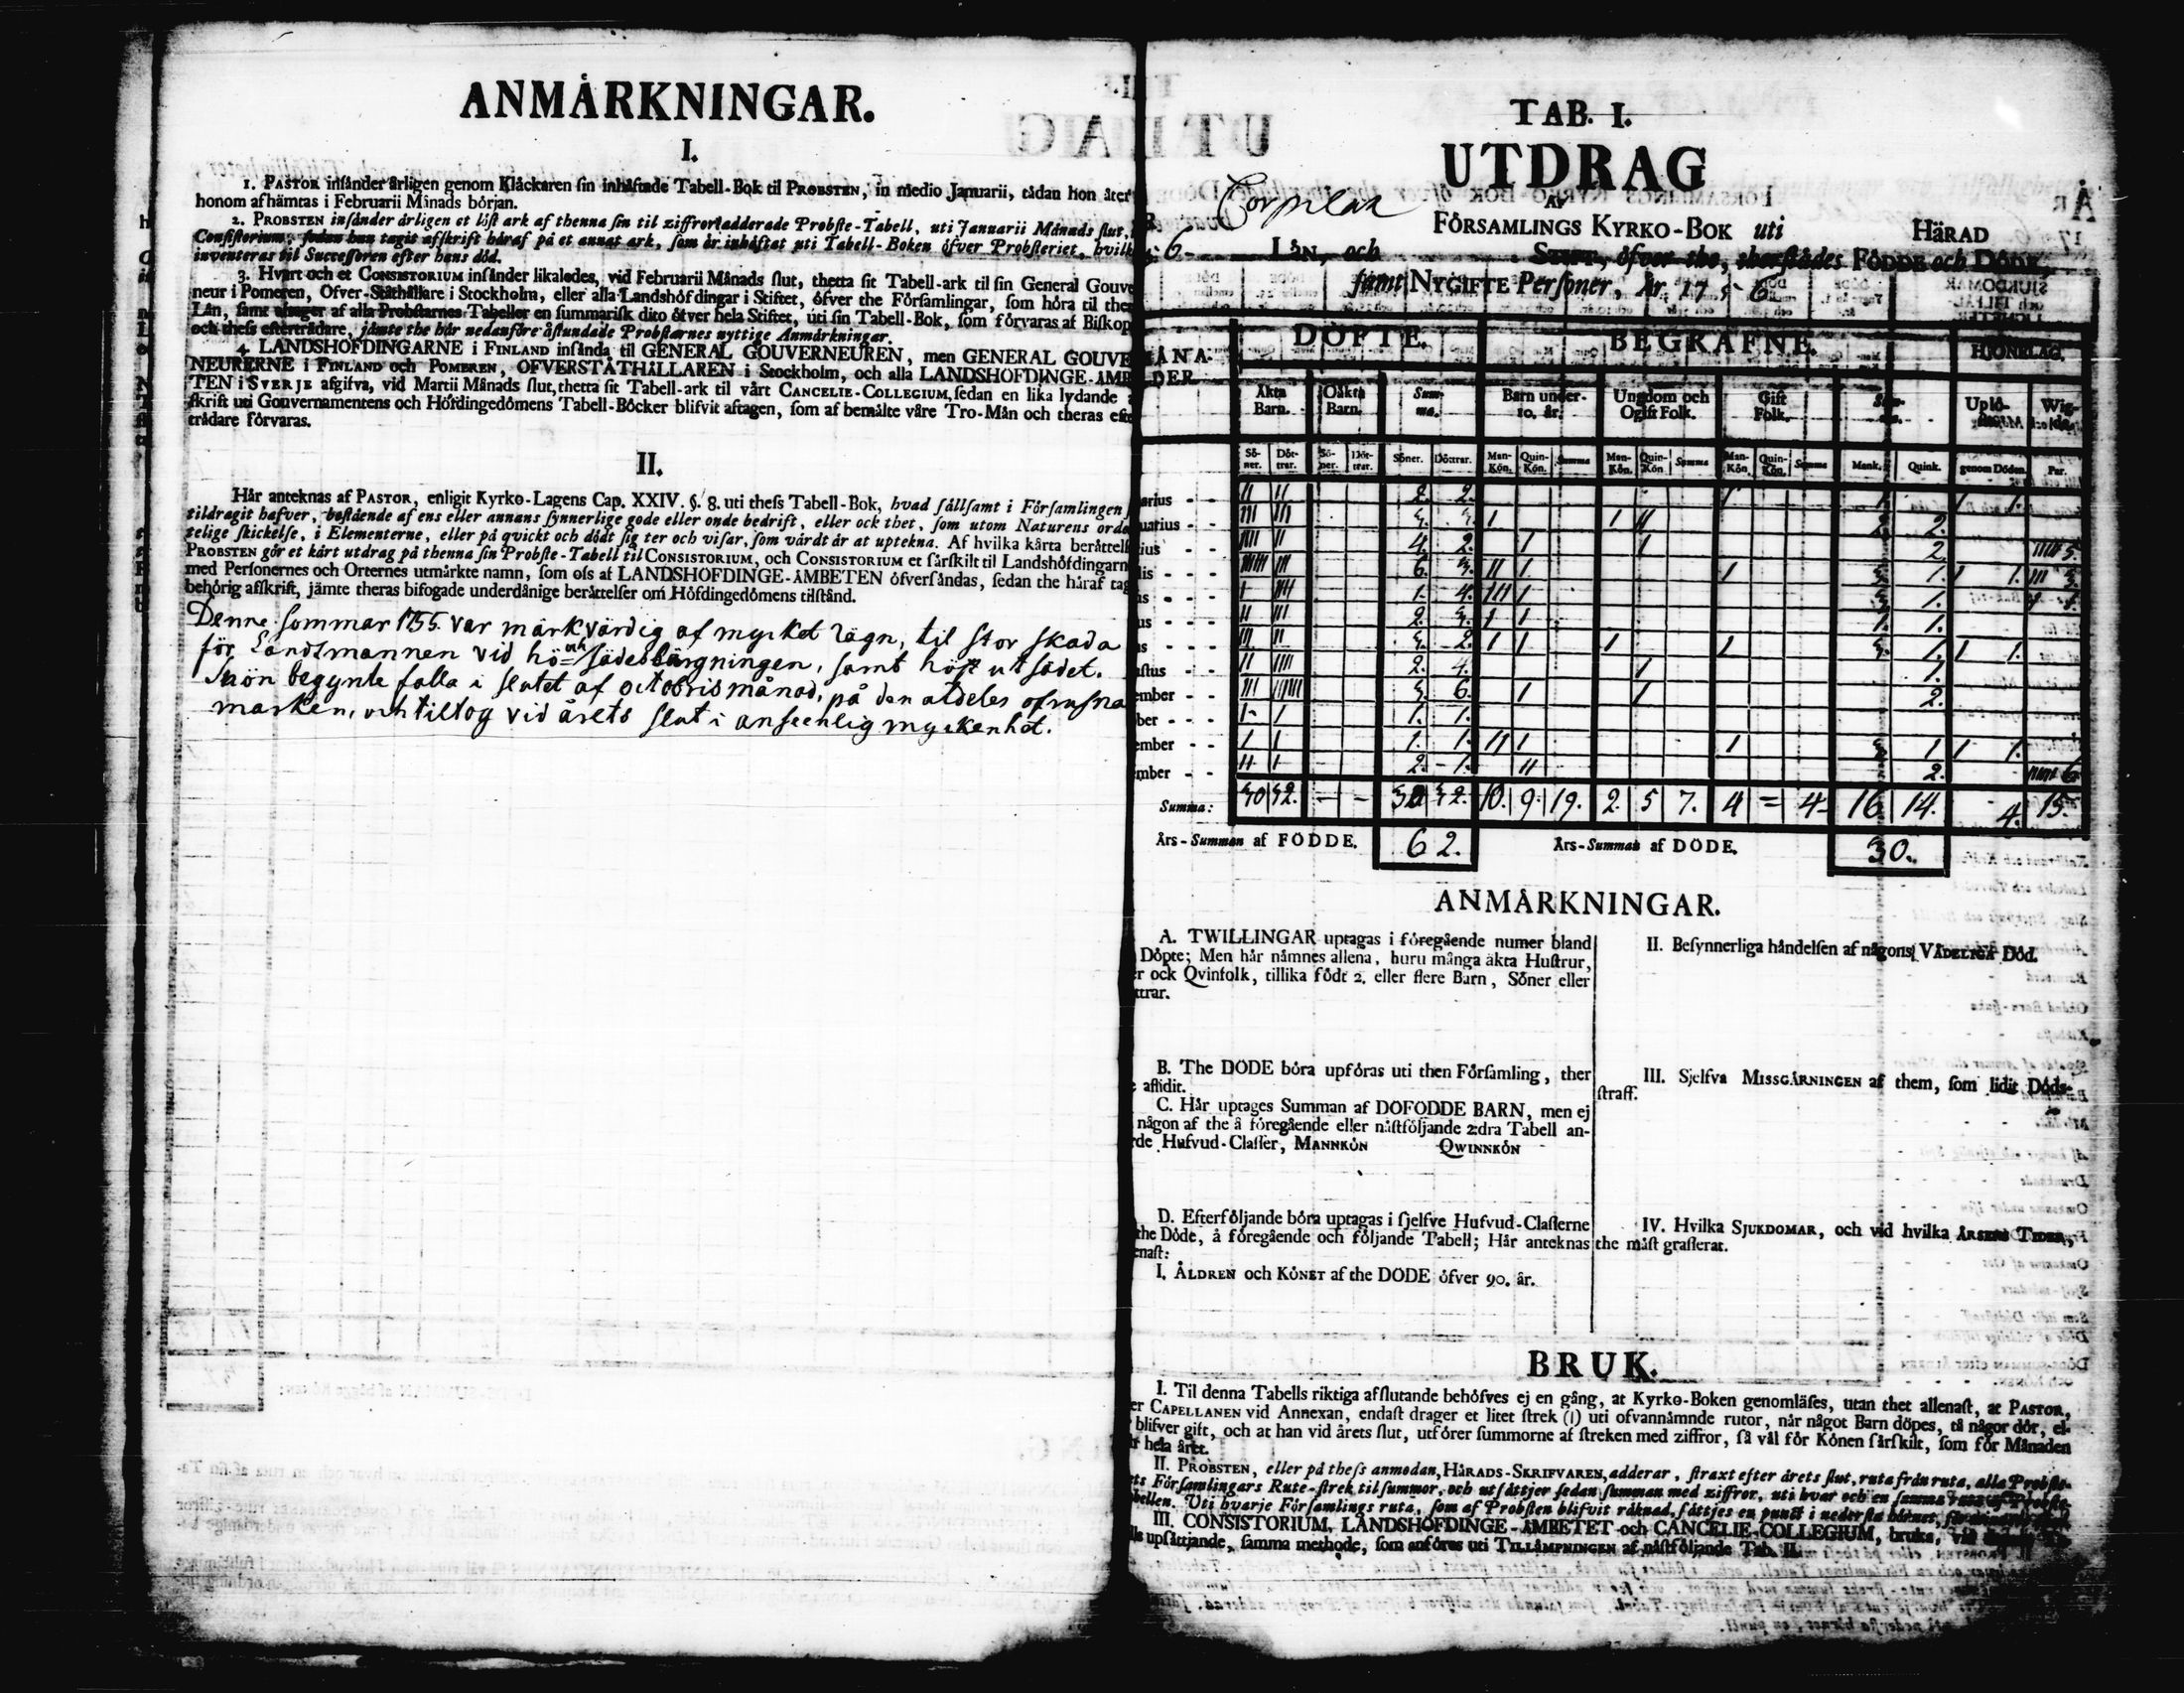 ANMÅRKNINGAR.
I.
1. PASTOR insånder årligen genom Klåckaren sin inhåftade Tabell-Bok til PROBSTEN, in medio Januarii, tådan hon åter
honom afhåmtas i Februarii Månads början.
2. PROBSTEN insånder årligen et löst ark af thenna sin til ziffror adderade Probste-Tabell, uti Januarii Månads slut,
Consistorium, sedan han tagit afskrift håraf på et annat ark, som år inhåftat uti Tabell-Boken öfver Probsteriet, hvilk
inventeras til Successoren efter hans död.
3. Hvart och et CONSISTORIUM insånder likaledes, vid Februarii Månads slut, thetta sit Tabell-ark til sin General Gouve
neur i Pomeren, Ofver-Ståthållare i Stockholm, eller alla Landshöfdingar i Stiftet, öfver the Församlingar, som höra til ther
Lån, samt af alla Probstarnes Tabeller en summarisk dito öfver hela Stiftet, uti sin Tabell-Bok, som förvaras af Biskop
och thess eftertrådare, jåmte the hår nedanföre åstundade Probstarnes nyttige Anmårkningar.
4. LANDSHOFDINGARNE i FINLAND insånda til GENERAL GOUVERNEUREN, men GENERAL GOUVE
NEURERNE i FINLAND och POMEREN, OFVERSTÅTHÅLLAREN i Stockholm, och alla LANDSHOFDINGE-ÅMB
TEN i SVERJE afgifva, vid Martii Månads slut, thetta sit Tabell-ark til vårt CANCELIE-COLLEGIUM, sedan en lika lydande
skrift uti Gouvernamentens och Höfdingedömens Tabell-Böcker blifvit aftagen, som af bemålte våre Tro-Mån och theras eft
trådare förvaras.
II.
Hår anteknas af PASTOR, enligit Kyrko-Lagens Cap. XXIV. §. 8. uti thess Tabell-Bok, hvad sållsamt i Församlingen
tildragit hafver, bestående af ens eller annans synnerlige gode eller onde bedrift, eller ock thet, som utom Naturens orde
telige skickelse, i Elementerne, eller på qvickt och dödt sig ter och visar, som vårdt år at uptekna. Af hvilka kårta beråttels
PROBSTEN gör et kårt utdrag på thenna sin Probste-Tabell til CONSISTORIUM, och CONSISTORIUM et sårskilt til Landshöfdingarn
med Personernes och Orternes utmårkte namn, som oss af LANDSHOFDINGE-ÅMBETEN öfversåndas, sedan the håraf tag
behörig afskrift, jåmte theras bifogade underdånige beråttelser om Höfdingedömens tilstånd.
Denne sommar 1755. var märkvärdig af mycket rägn, til stor skada
för Landtmannen vid hö= och sädesbärgningen, samt höst utsädet.
Snön begynte falla i slutet af octobris månad, på den aldeles ofrusna
marken, och tiltog vid årets slut i anseenlig myckenhet.
TAB. I.
UTDRAG
AF
Corpilax FÖRSAMLINGS KYRKO-BOK uti HÄRAD
6. LÅN, och STIFT, öfver the, therstådes FÖDDE och DÖDE,
samt NYGIFTE Personer, år 1756
MÅNA- DÖPTE. BEGRAFNE. HJONELAG.
DER
Åkta Barn. Oåkta Barn. Summa. Barn under 10. år. Ungdom och Ogift Folk. Gift Folk. Summa. Uplösta genom Döden. Wigde.
Söner. Döttrar. Söner. Döttrar. Söner. Döttrar. Man-Kön. Quin-Kön. Summa Man-Kön. Quin-Kön Summa Man-Kön. Quin-Kön. Summa Mank. Quink. genom Döden. Par.
arius - - II II 2. 2. I 1. I 1.
uarius - - III III 3. 3. I I II 2. 2.
tius - - IIII II 4. 2. I I 2. IIIII 5.
lis - - - IIIIII III 6. 3. II I I 3. 1. I 1. III 3.
us - - - I IIII 1. 4. III I 3. 1.
us - - - II III 2. 3. I I 1. 1.
s - - - III II 3. 2. I I I I 3. 1. I 1.
stus - - II IIII 2. 4. I 1.
ember - - III IIIIII 3. 6. I I 2.
ber - - - I I 1. 1.
ember - - I I 1. 1. II I I 3. 1. I 1.
mber - - II I 2. 1. II 2. 6.
Summa: 30 32. - - 30 32. 10. 9. 19. 2. 5 7. 4 = 4. 16. 14. 4. 15.
Års-Summan af FÖDDE. 62. Års-Summan af DÖDE. 30.
ANMÅRKNINGAR.
A. TWILLINGAR uptagas i föregående numer bland
Döpte; Men hår nåmnes allena, huru många åkta Hustrur,
r ock Qvinfolk, tillika födt 2. eller flere Barn, Söner eller
ttrar.
B. The DÖDE böra upföras uti then Församling, ther
aflidit.
C. Hår uptages Summan af DÖFÖDDE BARN, men ej
någon af the å föregående eller nåstföljande 2:dra Tabell an-
rde Hufvud-Classer, MANNKÖN QWINNKÖN
D. Efterföljande böra uptagas i sjelfve Hufvud-Classerne
the Döde, å föregående och följande Tabell; Hår anteknas
enast:
I. ÅLDREN och KÖNET af the DÖDE öfver 90. år.
II. Besynnerliga håndelsen af någons VÅDELIGA Död.
III. Sjelfva MISSGÅRNINGEN af them, som lidit Döds-
straff.
IV. Hvilka SJUKDOMAR, och vid hvilka ÅRSENS TIDER,
the måst grasserat.
BRUK.
I. Til denna Tabells riktiga afslutande behöfves ej en gång, at Kyrko-Boken genomlåses, utan thet allenast, at PASTOR,
er CAPELLANEN vid Annexan, endast drager et litet strek (I) uti ofvannåmnde rutor, når något Barn döpes, tå någor dör, el-
blifver gift, och at han vid årets slut, utförer summorne af streken med ziffror, så vål för Könen sårskilt, som för Månaden
hela året.
II. PROBSTEN, eller på thess anmodan, HÅRADS-SKRIFVAREN, adderar, straxt efter årets slut, ruta från ruta, alla Probste-
ts Församlingars Rute-strek til summor, och utsåttjer sedan summan med ziffror, uti hvar och en
bellen. Uti hvarje Församlings ruta, som af Probsten blifvit råknad, såttjes en punct i nedersta hörnet,
III. CONSISTORIUM, LANDSHÖFDINGE-ÅMBETET och CANCELIE-COLLEGIUM, bruka, vid
upsåttjande, samma methode, som anföres uti TILLÅMPNINGEN af nåstföljande Tab. II.